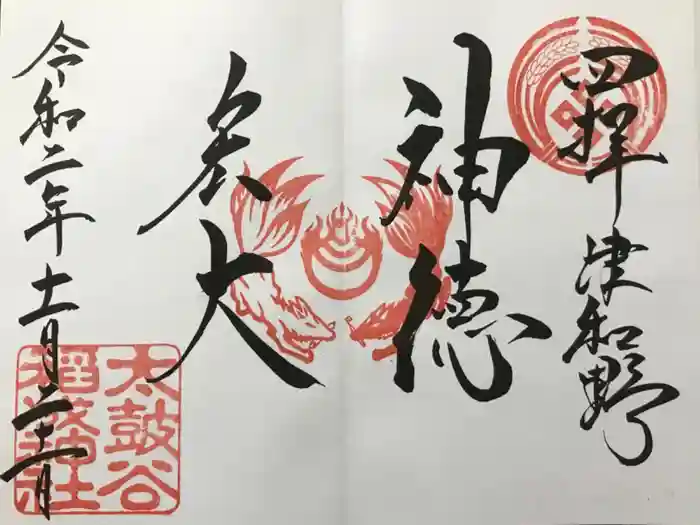 四拝 津和野
神徳
大
令和二年十一月二十一日
太鼓谷
稲成神社